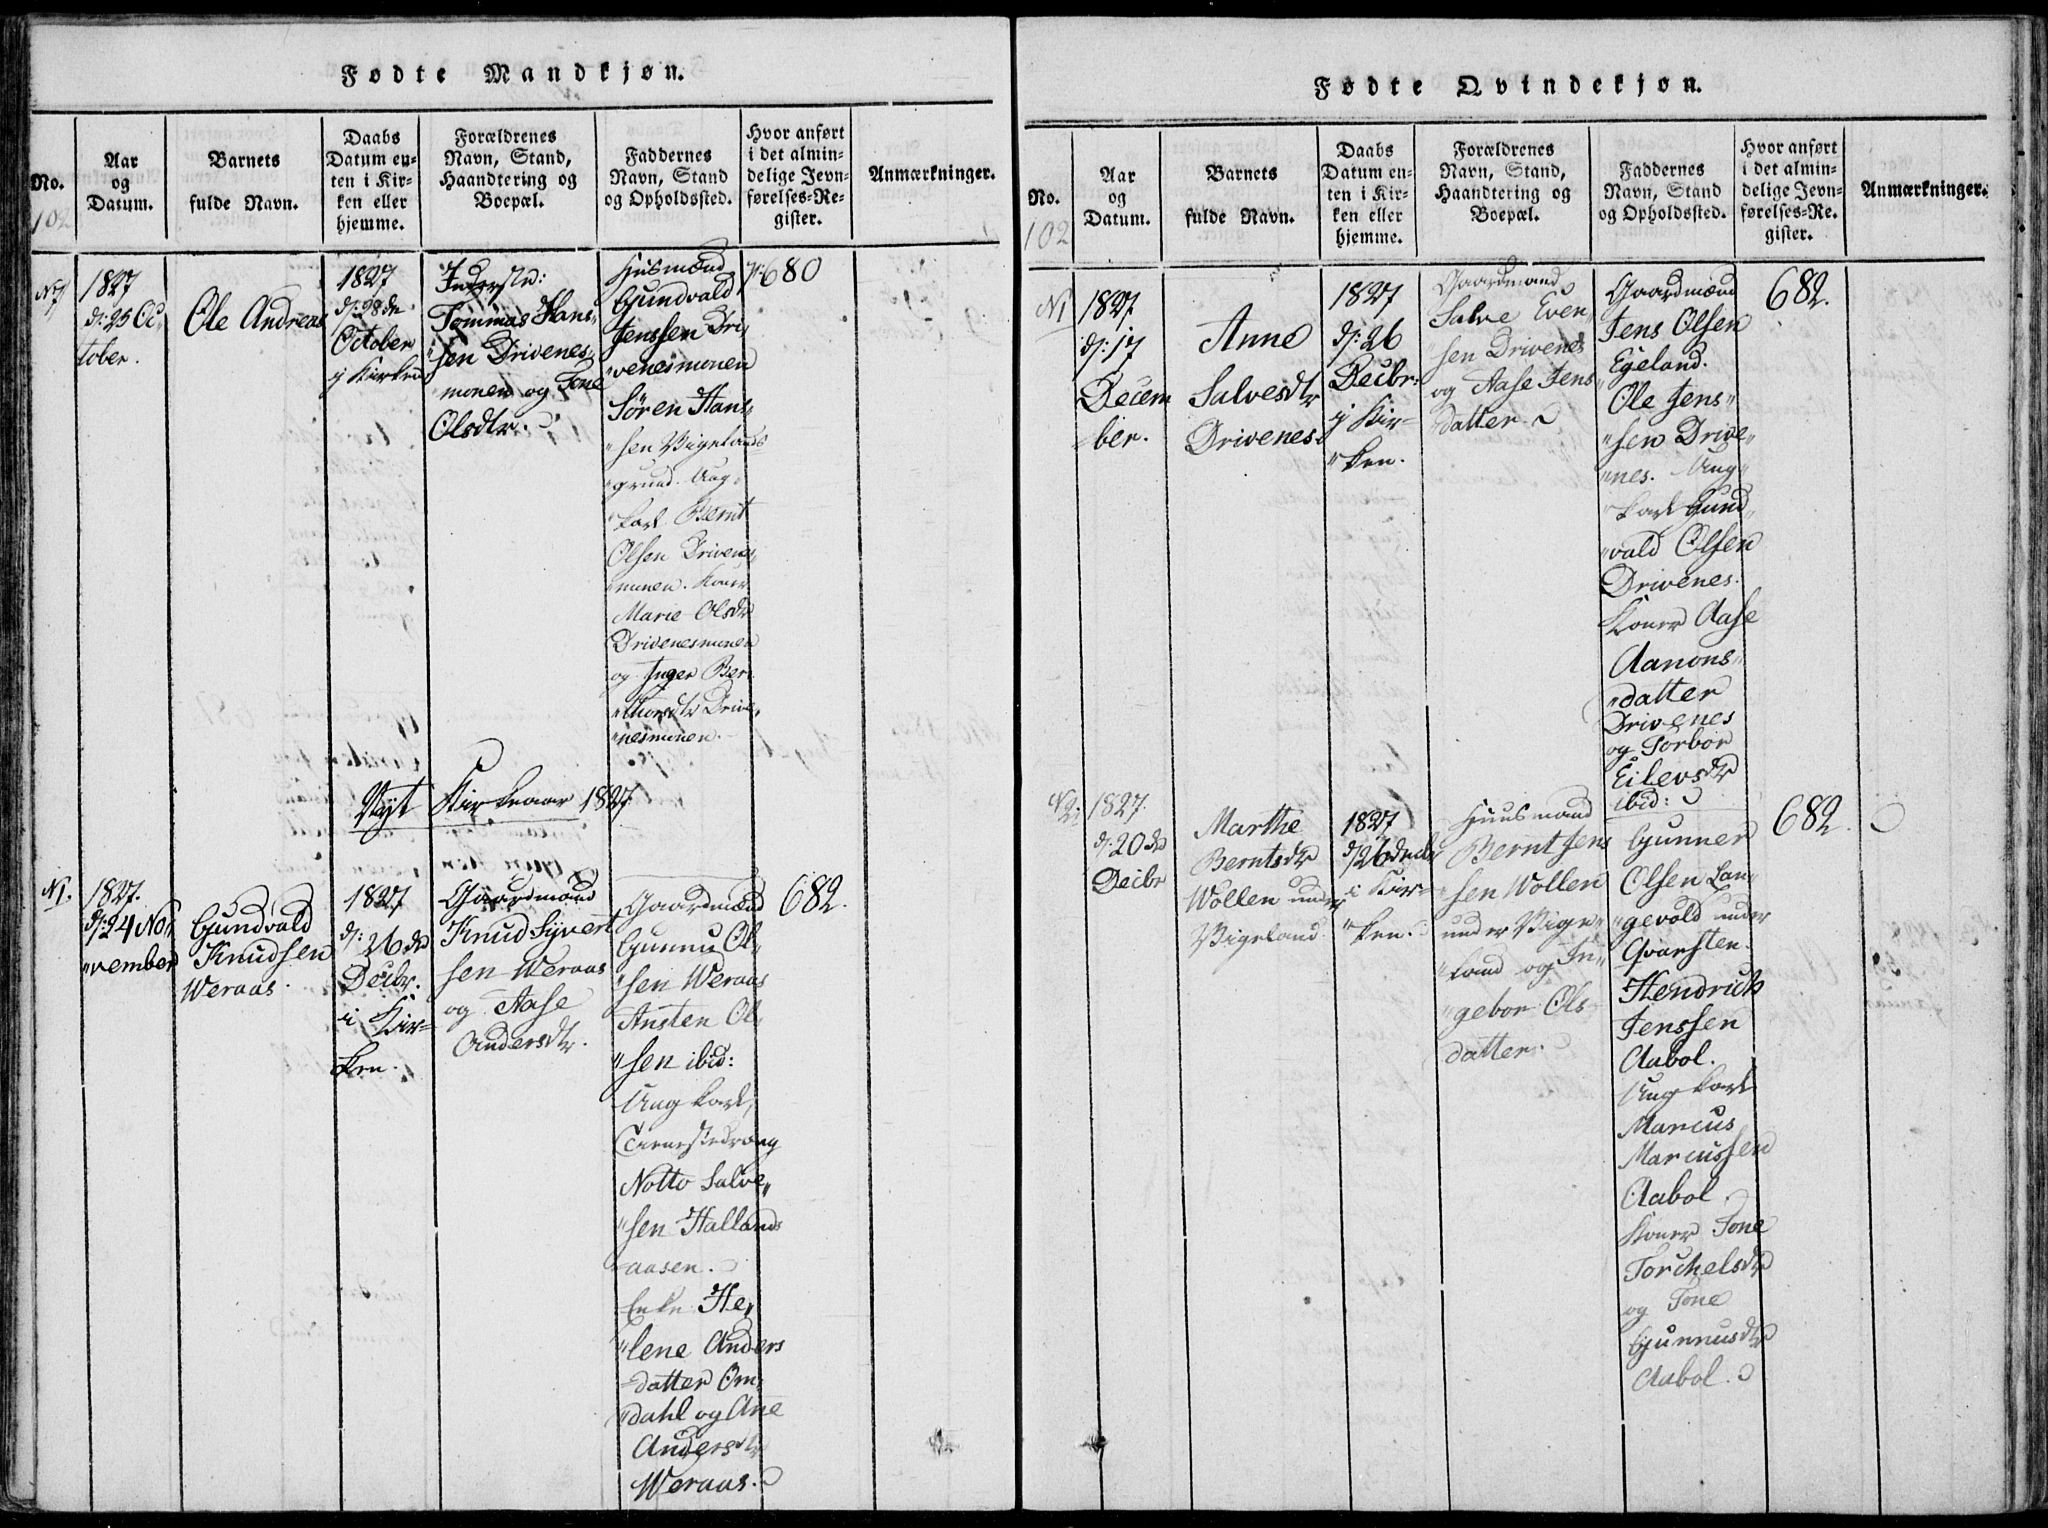 Fødte Mandkjøn.
No.
102
Aar
og
Datum.
Barnets
fulde Navn.
Daabs
Datum en-
ten i Kir-
ken eller
hjemme.
Forældrenes
Navn, Stand,
Haandtering og
Boepæl.
Faddernes
Navn, Stand
og Opholdssted.
Hvor anført
i det almin-
delige Jevn-
førelses-Re-
gister.
Anmærkninger.
N7
1827
d: 25 Oc-
tober.
Ole Andreas
1827
d: 28 de
October
i Kirken
Inderstd:
Tommas Hans-
"sen Drivenes-
monen og Tone
Olsdtr.
Husmænd
Gundvald
Jenssen Dri-
venesmonen
Sören Hans-
"sen Vigelands
"grund. Ung-
"karl Bernt
Olsen Drivenes-
"monen. Koner
Marie Olsdtr
Drivenesmonen
og Inger Ber-
"thorsdtr Drive-
"nesmonen.
680
Nyt Kirkeaar 1827
N1.
1827.
d: 24 No-
"vember
Gundvald
Knudsen
Weraas.
1827
d:
26 de
Decbr.
i Kir-
ken.
Gaardmand
Knud Syvert
sen Weraas
og Aase
Andersdtr.
Gaardmænd
Gunnu Ol-
"sen Weraas
Ansten Ol-
"sen ibid:
Ung karl,
Tienestedræng
Notto Salve-
"sen Hallands
-aasen.
Enke He-
"lene Anders
-datter Om-
"dahl og Ane
Andersdtr
Weraas.
682.
Fødte Qvindekjøn.
No.
102
Aar
og
Datum.
Barnets
fulde Navn.
Daabs
Datum en-
ten i Kir-
ken eller
hjemme.
Forældrenes
Navn, Stand,
Haandtering og
Boepæl.
Faddernes
Navn, Stand
og Opholdssted.
Hvor anført
i det almin-
delige Jevn-
førelses-Re-
gister.
Anmærkninger.
N1
1827
d: 17
Decem
-ber.
Anne
Salvesdtr
Drivenes.
1827
d: 26
Decbr:
i Kir-
"ken.
Gaardmand
Salve Even-
"sen Drivenes
og Aase Jens
datter.
Gaardmænd
Jens Olsen
Egeland.
Ole Jens-
"sen Drive-
"nes. Ung-
"karl Gund-
"vald Olsen
Drivenes.
Koner Aase
Aanons-
"datter
Drivenes
og Torbor
Eilevsdtr
ibid:
682.
N2:
1827.
d: 20 de
Decbr
Marthe
Berntsdtr
Wollen under
Vigeland.
1827
d/26 Decbr
i Kir-
"ken.
Huusmand
Bernt Jens
"sen Wollen
under Vige-
"land og In-
"gebor Ols-
datter.
Gunner
Olsen Lan-
"gevold under
Qvarsten.
Hendrick
Jenssen
Aabol.
Ung karl
Marcus
Marcussen
Aabol.
Koner Tone
Torchelsdtr
og Tone
Gunnusdtr
Aabol.
682.